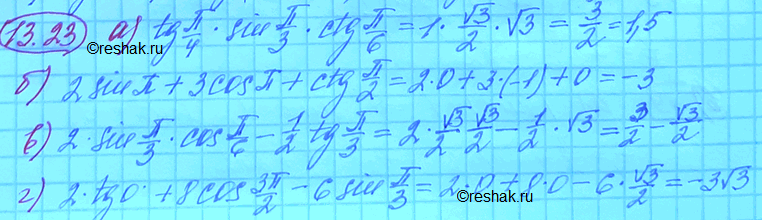 13.23 а) tg π/4 · sin π/3 · ctg π/6 = 1 · √3/2 · √3 = 3/2 = 1,5
©reshak.ru
б) 2 sin π + 3 cos π + ctg π/2 = 2·0 + 3·(-1) + 0 = -3
в) 2 · sin π/3 · cos π/6 - 1/2 tg π/3 = 2 · √3/2 √3/2 - 1/2 · √3 = 3/2 - √3/2
г) 2 · tg 0 · + 8 cos 3π/2 - 6 sin π/3 = 2·0 + 8·0 - 6 · √3/2 = -3√3
©reshak.ru